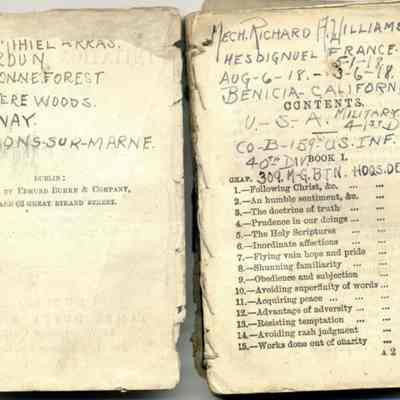 MIHIEL ARRAS.
RDUN.
ONNE FOREST
ERE WOODS.
NAY.
ONS-SUR-MARNE.
DUBLIN:
BY EDMUND BURKE & COMPANY,
AND 62 GREAT STRAND STREET.
MECH. RICHARD A. WILLIAMS
HESDIGNUEL FRANCE.
5-1-18.
AUG-6-18. - 3-6-18.
BENICIA-CALIFORN
CONTENTS.
U.-S-A. MILITARY
CO-B-159th U.S. INF.
40th DIV
BOOK I.
CHAP. 309. M-G. BTN. HDQS. DE
1.—Following Christ, &c. ... ...
2.—An humble sentiment, &c. ...
3.—The doctrine of truth ... ...
4.—Prudence in our doings ... ...
5.—The Holy Scriptures ... ...
6.—Inordinate affections ... ...
7.—Flying vain hope and pride ...
8.—Shunning familiarity ... ...
9.—Obedience and subjection ...
10.—Avoiding superfluity of words ...
11.—Acquiring peace ... ... ...
12.—Advantage of adversity ... ...
13.—Resisting temptation ... ...
14.—Avoiding rash judgment ...
15.—Works done out of charity ...
A 2